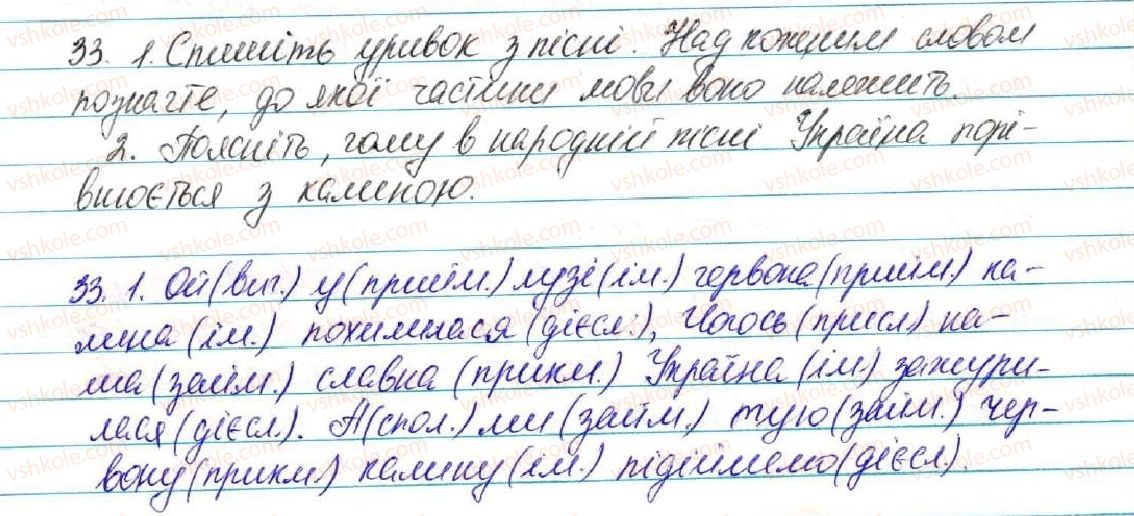 33. 1. Спишіть уривок з пісні. Над кожним словом
позначте, до якої частини мови воно належить.
2. Поясніть, чому в народній пісні Україна порі-
внюється з калиною.
33. 1. Ой (виг.) у (прийм.) лузі (ім.) червона (прийм.) ка-
лина (ім.) похилилася (дієсл.), Чогось (присл.) на-
ша (займ.) славна (прикм.) Україна (ім.) зажури-
лася (дієсл.). А (спол.) ми (займ.) тую (займ.) чер-
вону (прикм.) калину (ім.) підіймемо (дієсл.)